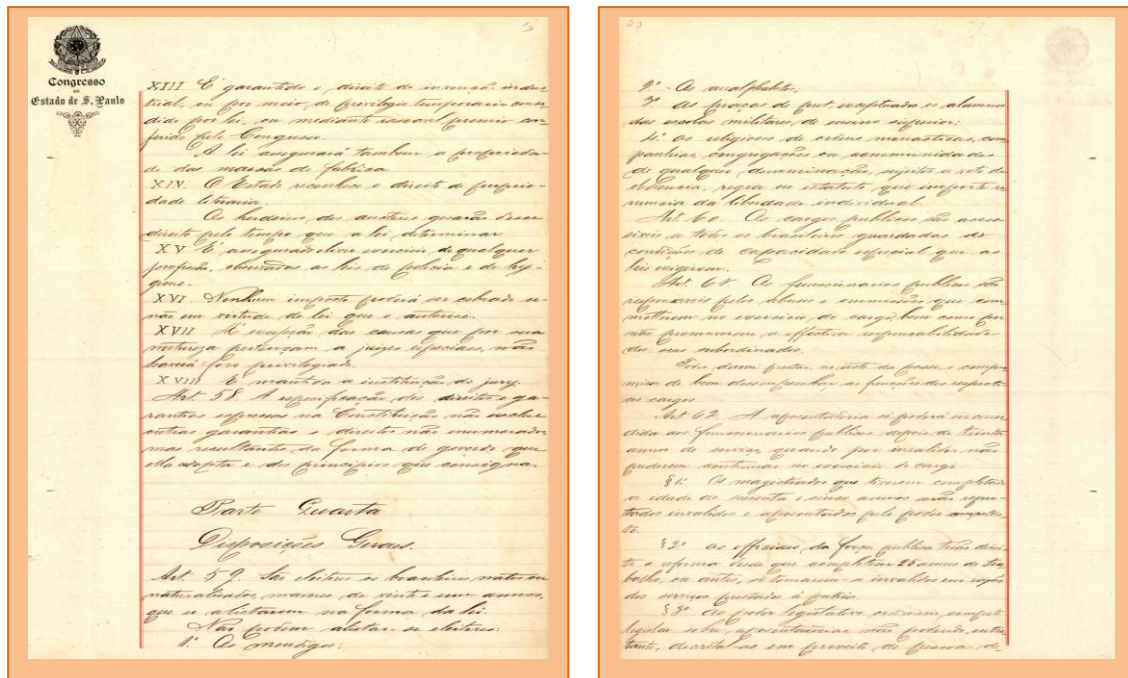 Congresso
DO
Estado de S. Paulo
XIII É garantido o direito de invenção indus
trial, ou por meio de privilegio temporario conce
dido por lei, ou mediante razoavel premio con
ferido pelo Congresso.
A lei assegurará tambem a proprieda-
de das marcas de fabrica
XIV. O Estado reconhece o direito de proprie-
dade literaria.
Os herdeiros dos auctores gosarão d'esse
direito pelo tempo que a lei determinar.
XV É assegurado o livre exercicio de qualquer
profissão, observadas as leis de policia e de hy-
giene.
XVI Nenhum imposto poderá ser cobrado se-
não em virtude de lei que o autorise.
XVII Á excepção das causas que por sua
natureza pertençam a juizes especiaes, não
haverá foro privilegiado.
XVIII É mantida a instituição do jury.
Art. 58 A especificação dos direitos e ga-
rantias expressas na Constituição não exclue
outras garantias e direitos não enumerados
mas resultantes da forma de governo que
ella adopta e dos principios que consigna.
Parte Quarta
Disposições Geraes.
Art. 59. São eleitores os brasileiros natos ou
naturalisados, maiores de vinte e um annos,
que se alistarem na forma da lei.
Não podem alistar-se eleitores:
1º Os mendigos;
20
2º - Os analphabetos;
3º As praças de pret, exceptuados os alumnos
das escolas militares, de ensino superior;
4º Os religiosos de ordens monasticas, com
panhias, congregações ou communidades
de qualquer denominação, sujeitos a voto de
obediencia, regra ou estatuto que importe re
nuncia da liberdade individual.
Art. 60. Os cargos publicos são acces-
siveis a todos os brasileiros guardadas as
condições de capacidade especial que as
leis exigirem.
Os funccionarios publicos são
responsaveis pelos abusos e ommissões que com
metterem no exercicio do cargo, bem como por
não promoverem a effectiva responsabilidade
dos seus subordinados.
Todos devem prestar no acto da posse o compro
misso de bem desempenhar as funcções dos respecti-
vos cargos
Art 62. A aposentadoria só poderá ser conce
dida aos funccionarios publicos depois de trinta
annos de serviço, quando por invalidez não
puderem continuar no exercicio do cargo
§ 1º Os magistrados que tiverem completado
a idade de sessenta e cinco annos serão repu-
tados invalidos e aposentados pelo poder competen
te.
§ 2º Os officiaes da força publica terão direi-
to a reforma desde que completem 25 annos de tra
balho, ou antes, se tornarem-se invalidos em razão
dos serviços prestados á patria.
§ 3º Ao poder legislativo ordinario compete
legislar sobre aposentadorias não podendo, entre
tanto, decretal-as em proveito de pessoa de-